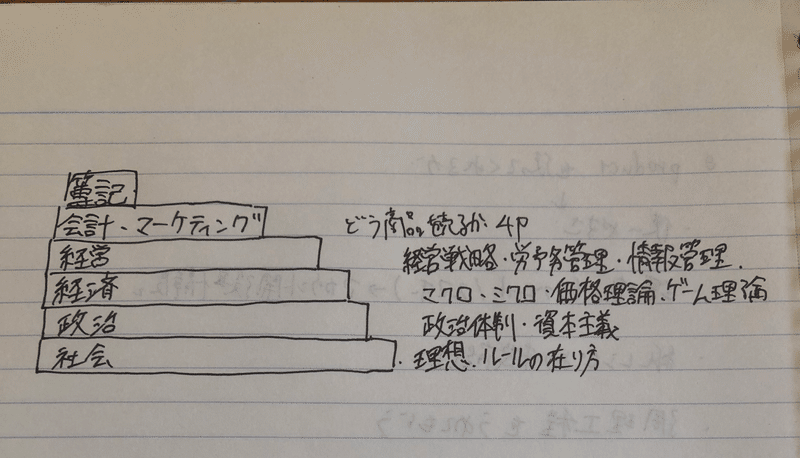 簿記
会計・マーケティング どう商品を売るか 4P
経営 経営戦略・労務管理・情報管理.
経済 マクロ・ミクロ・価格理論・ゲーム理論
政治 政治体制・資本主義
社会 ・理想・ルールの在り方